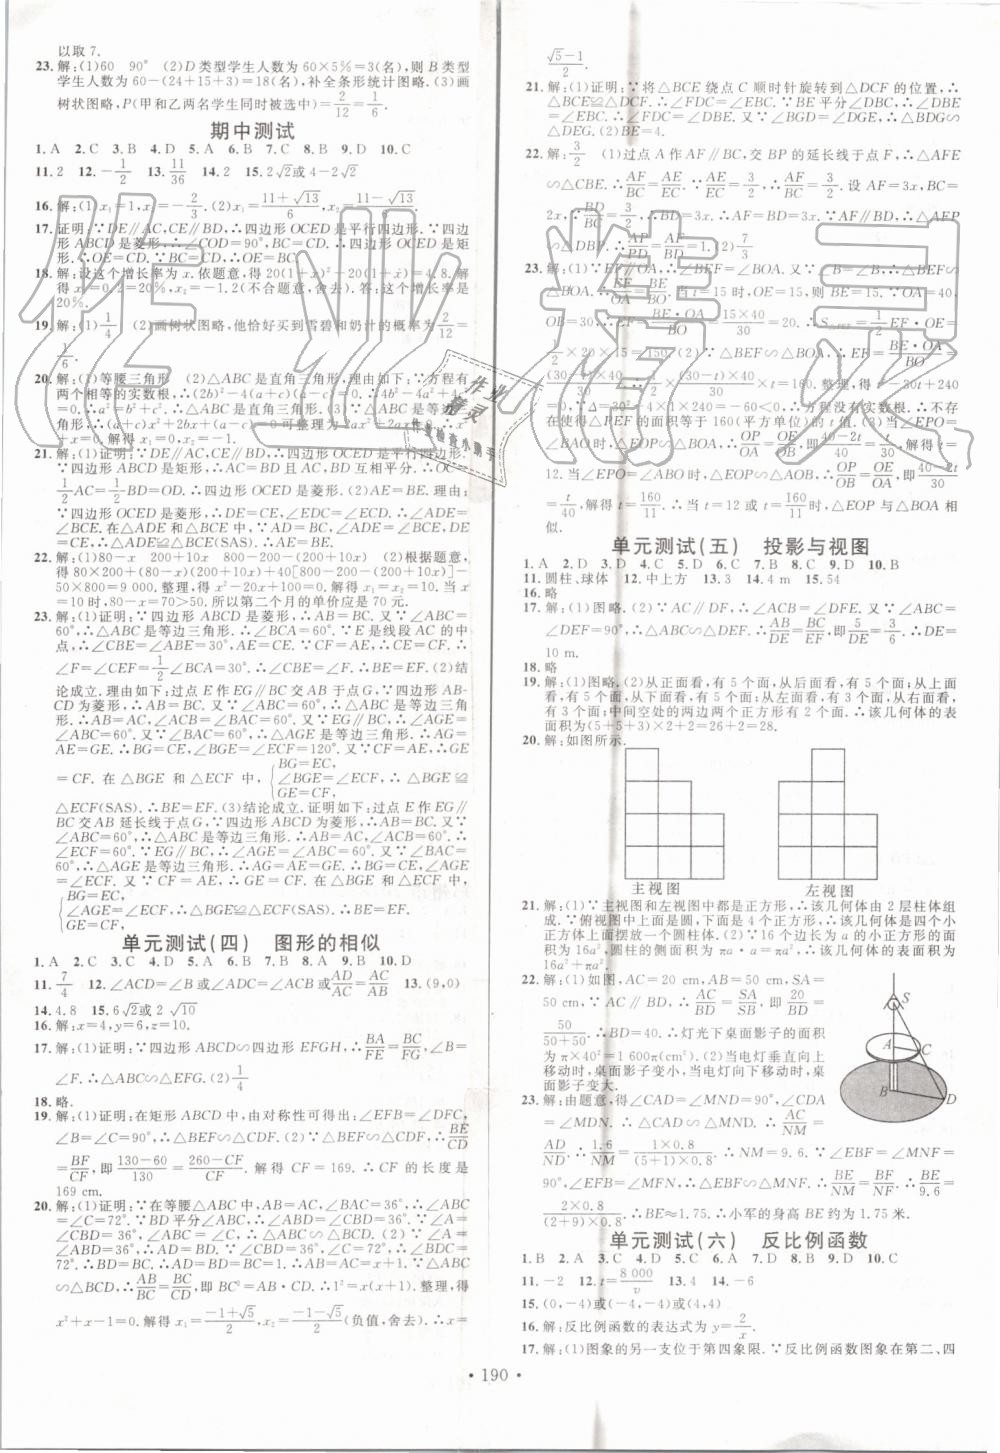 以取 7.
23.解:(1)60 90° (2)D 类型学生人数为 60×5%=3(名),则 B 类型
学生人数为 60-(24+15+3)=18(名),补全条形统计图略.(3)画
树状图略,P(甲和乙两名学生同时被选中)=2/12=1/6.
期中测试
1.A 2.C 3.B 4.D 5.A 6.B 7.C 8.B 9.D 10.C
11.2 12.-1/2 13.11/36 14.2 15.2√2或 4-2√2
16.解:(1)x₁=1,x₂=-2/3.(2)x₁=(11+√13)/6,x₂=(11-√13)/6.
17.证明:∵DE∥AC,CE∥BD,∴四边形 OCED 是平行四边形.∵四边
形 ABCD 是菱形,∴∠COD=90°,BC=CD.∴四边形 OCED 是矩
形.∴OE=CD.又∵BC=CD,∴OE=BC.
18.解:设这个增长率为 x.依题意,得 20(1+x)²-20(1+x)=4.8.解得
x₁=0.2=20%,x₂=-1.2(不合题意,舍去).答:这个增长率是
20%.
19.解:(1)1/4 (2)画树状图略,他恰好买到雪碧和奶汁的概率为2/12=
1/6.
20.解:(1)等腰三角形 (2)△ABC 是直角三角形,理由如下:∵方程有
两个相等的实数根,∴(2b)²-4(a+c)(a-c)=0.∴4b²-4a²+4c²
=0.∴a²=b²+c².∴△ABC 是直角三角形.(3)∵△ABC 是等边三角
形,∴(a+c)x²+2bx+(a-c)=0 可整理为 2ax²+2ax=0.∴x²
+x=0.解得 x₁=0,x₂=-1.
21.解:(1)证明:∵DE∥AC,CE∥BD,∴四边形 OCED 是平行四边形.
∵四边形 ABCD 是矩形,∴AC=BD 且 AC,BD 互相平分.∴OC=
1/2AC=1/2BD=OD.∴四边形 OCED 是菱形.(2)AE=BE.理由:
∵四边形 OCED 是菱形,∴DE=CE,∠EDC=∠ECD.∴∠ADE
=∠BCE.在△ADE 和△BCE 中,∵AD=BC,∠ADE=∠BCE,DE
=CE,∴△ADE≌△BCE(SAS).∴AE=BE.
22.解:(1)80-x 200+10x 800-200-(200+10x) (2)根据题意,
得 80×200+(80-x)(200+10x)+40[800-200-(200+10x)]-
50×800=9 000,整理,得 x²-20x+100=0.解得 x₁=x₂=10.当 x
=10 时,80-x=70>50.所以第二个月的单价应是 70 元.
23.解:(1)证明:∵四边形 ABCD 是菱形,∴AB=BC.又∵∠ABC=
60°,∴△ABC 是等边三角形.∴∠BCA=60°.∵E 是线段 AC 的中
点,∴∠CBE=∠ABE=30°,AE=CE.∵AE=CF,∴CE=CF.∴
∠F=∠CEF=1/2∠BCA=30°.∴∠CBE=∠F=30°.∴BE=EF.(2)结
论成立.理由如下:过点 E 作 EG∥BC 交 AB 于点 G.∵四边形 AB-
CD 为菱形,∴AB=BC.又∵∠ABC=60°,∴△ABC 是等边三角形.
∴AB=AC,∠ACB=60°.又∵EG∥BC,∴∠AGE=∠ABC
=60°.又∵∠BAC=60°,∴△AGE 是等边三角形.∴AG=
AE=GE.∴BG=CE,∠BGE=∠ECF=120°.又∵CF=AE,∴GE
=CF.在△BGE 和△ECF 中,{BG=EC, ∠BGE=∠ECF, GE=CF. ∴△BGE≌
△ECF(SAS).∴BE=EF.(3)结论成立.证明如下:过点 E 作 EG∥
BC 交 AB 延长线于点 G.∵四边形 ABCD 为菱形,∴AB=BC.又∵
∠ABC=60°,∴△ABC 是等边三角形.∴AB=AC,∠ACB=60°.∴
∠ECF=60°.∵EG∥BC,∴∠AGE=∠ABC=60°.又∵∠BAC=
60°,∴△AGE 是等边三角形.∴AG=AE=GE.∴BG=CE,∠AGE
=∠ECF.又∵CF=AE,∴GE=CF.在△BGE 和△ECF 中,
{BG=EC, ∠AGE=∠ECF, GE=CF. ∴△BGE≌△ECF(SAS).∴BE=EF.
单元测试(四) 图形的相似
1.A 2.C 3.C 4.D 5.A 6.B 7.C 8.A 9.B 10.D
11.7/4 12.∠ACD=∠B 或∠ADC=∠ACB 或AD/AC=AC/AB 13.(9,0)
14.4.8 15.6√2或 2√10
16.解:x=4,y=6,z=10.
17.解:(1)证明:∵四边形 ABCD∽四边形 EFGH,∴BA/FE=BC/FG,∠B=
∠F.∴△ABC∽△EFG.(2)1/4
18.略.
19.解:(1)证明:在矩形 ABCD 中,由对称性可得出:∠EFB=∠DFC,
∠B=∠C=90°,∴△BEF∽△CDF.(2)∵△BEF∽△CDF,∴BE/CD
=BF/CF,即(130-60)/130=(260-CF)/CF.解得 CF=169.∴CF 的长度是
169 cm.
20.解:(1)证明:∵在等腰△ABC 中,AB=AC,∠A=36°,∴∠ABC
=∠C=72°.∵BD 平分∠ABC,∴∠CBD=∠ABD=36°.∵∠A=
∠CBD=36°,∠C=∠C,∴△ABC∽△BDC.(2)∵∠C=∠BDC
=72°,∴BD=BC.∴AD=BD=BC=1.设 CD=x,∴AC=x+1.∵
△ABC∽△BDC,∴AB/BC=BC/CD,即 BC²=AB·CD.∴1²=x(x+1),整理,得
x²+x-1=0.解得 x₁=(-1+√5)/2,x₂=(-1-√5)/2(负值,舍去).∴x=
(√5-1)/2.
21.解:(1)证明:∵将△BCE 绕点 C 顺时针旋转到△DCF 的位置,∴
△BCE≌△DCF.∴∠FDC=∠EBC.∵BE 平分∠DBC,∴∠DBE
=∠EBC.∴∠FDC=∠DBE.又∵∠BGD=∠DGE,∴△BDG∽
△DEG.(2)BE=4.
22.解:3/2 (1)过点 A 作 AF∥BC,交 BP 的延长线于点 F,∴△AFE
∽△CBE.∴AF/BC=AE/EC.∵AE/EC=3/2,∴AF/BC=3/2.设 AF=3x,BC=
2x,∵BD/BC=
∽△DBF.∴AP/PD=AF/BD=3.(2)7/3
23.解:(1)∵EF∥OA,∴∠BEF=∠BOA.又∵∠B=∠B,∴△BEF∽
△BOA.∴EF/OA=BE/BO.当 t=15 时,OE=15,BE=15.∵OA=40,
OB=30,∴EF=BE·OA/BO=15×40/30=20.∴S△PEF=1/2EF·OE=
1/2×20×15=150.(2)∵△BEF∽△BOA,∴EF=BE·OA/BO=
=4/3(30-t).∴1/2×4/3(30-t)×t=160.整理,得 t²-30t+240
=0.∵Δ=30²-4×1×240=-60<0,∴方程没有实数根.∴不存
在使得△PEF 的面积等于 160(平方单位)的 t 值.(3)当∠EPO=
∠BAO 时,△EOP∽△BOA.∴OP/OA=OE/OB,即(40-2t)/40=t/30,解得 t=
12.当∠EPO=∠ABO 时,△EOP∽△AOB.∴OP/OB=OE/OA,即(40-2t)/30=
t/40,解得 t=160/11.∴当 t=12 或 t=160/11时,△EOP 与△BOA 相
似.
单元测试(五) 投影与视图
1.A 2.D 3.D 4.D 5.B 6.B 7.B 8.C 9.D 10.B
11.圆柱、球体 12.中上方 13.3 14.4 m 15.54
16.略
17.解:(1)图略.(2)∵AC∥DF,∴∠ACB=∠DFE.又∵∠ABC=
∠DEF=90°,∴△ABC∽△DEF.∴AB/DE=BC/EF,即5/DE=3/6.∴DE=
10 m.
18.略
19.解:(1)图略.(2)从正面看,有 5 个面,从后面看,有 5 个面,从上面
看,有 5 个面,从下面看,有 5 个面,从左面看,有 3 个面,从右面看,
有 3 个面;中间空处的两边两个正方形有 2 个面.∴该几何体的表
面积为(5+5+3)×2+2=26+2=28.
20.解:如图所示.
主视图 左视图
21.解:(1)∵主视图和左视图中都是正方形,∴该几何体由 2 层柱体组
成.∵俯视图中上面是圆,下面是 4 个正方形,∴该几何体是四个小
正方体上面摆放一个圆柱体.(2)∵16 个边长为 a 的小正方形的面
积为 16a²,圆柱的侧面积为 πa·a=πa²,∴该几何体的表面积为
16a²+πa².
22.解:(1)如图,AC=20 cm,AB=50 cm,SA=
50 cm,∵AC∥BD,∴AC/BD=SA/SB,即20/BD=
50/(50+50).∴BD=40.∴灯光下桌面影子的面积
为 π×40²=1 600π(cm²).(2)当电灯垂直向上移
动时,桌面影子变小,当电灯向下移动时,
桌面影子变大.
S
A C
B D
23.解:由题意,得∠CAD=∠MND=90°,∠CDA
=∠MDN.∴△CAD∽△MND.∴CA/NM=
AD/ND.∴1.6/NM=1×0.8/(5+1)×0.8.∴NM=9.6.∵∠EBF=∠MNF=
90°,∠EFB=∠MFN,∴△EFB∽△MFN.∴BE/NM=BF/NF.∴BE/9.6=
2×0.8/(2+9)×0.8.∴BE≈1.75.∴小军的身高 BE 约为 1.75 米.
单元测试(六) 反比例函数
1.B 2.A 3.C 4.D 5.C 6.A 7.D 8.B 9.D 10.C
11.-2 12.t=8 000/v 13.4 14.-6
15.(0,-4)或(-4,-4)或(4,4)
16.解:反比例函数的表达式为 y=2/x.
17.解:(1)图象的另一支位于第四象限.∵反比例函数图象在第二、四
· 190 ·
作业精灵
作业精灵
作业检查小助手